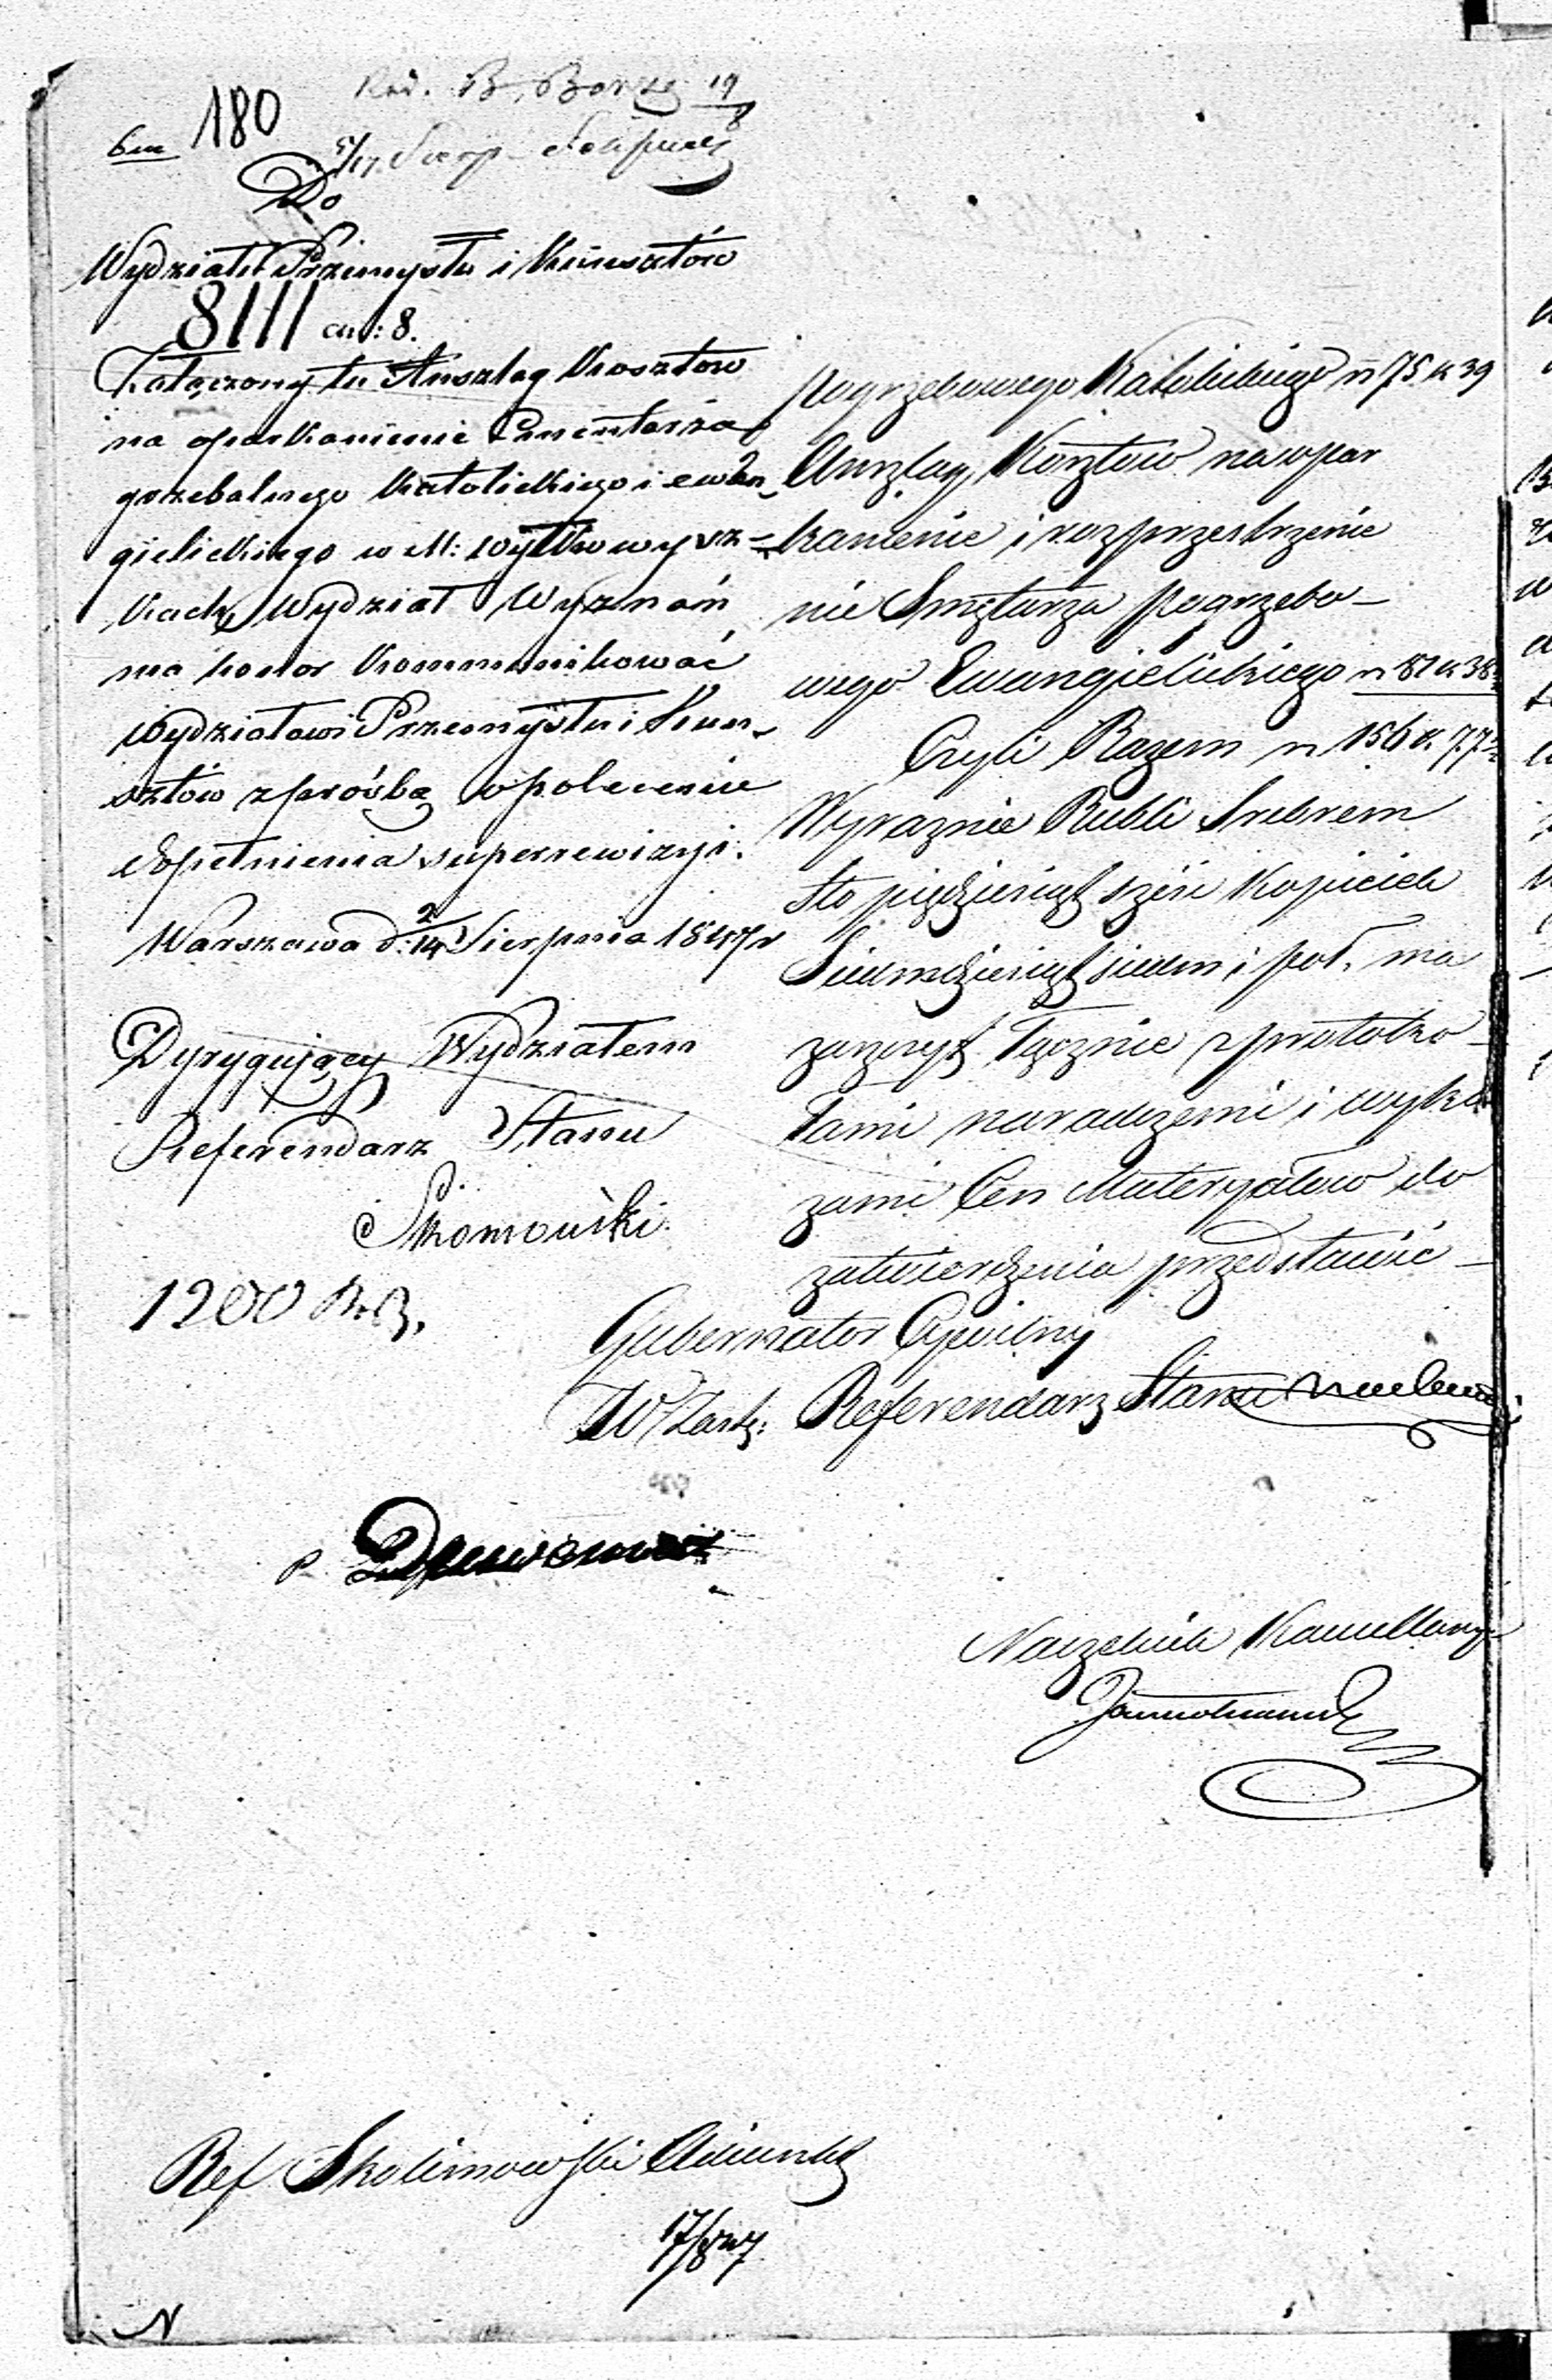 180
Do
Wydziału Przemysłu i Kunsztów
8111
Załączony tu Anszlag Kosztow
na oparkanienie Cmentarza
grzebalnego Katolickiego i ewan-
gielickiego w M:
kach, Wydział Wyznań
ma honor kommunikować
Wydziałowi Przemysłu i Kun-
sztów z prośbą o polecenie
dopełnienia superrewizyi.
Warszawa d: 2/14 Sierpnia 1847 r
Dyrygujący Wydziałem
Referendarz Stanu
1200
pogrzebowego Katolickiego rs 75 k 39
Anszlag Kosztow na opar
kanienie i rozprzestrzenie
nie Smętarza pogrzebo-
wego Ewangielickiego rs 81 k 38½
Czyli Razem rs 156 k. 77½
Wyraznie Rubli Srebrem
sto pięćdziesiąt sześć kopiejek
Siedmdziesiąt siedm i poł, ma
zaszczyt łącznie z protoko-
łami naradczemi i wyka
zami Cen Materyałow do
zatwierdzenia przedstawić -
Gubernator Cywilny
W Zast: Referendarz Stanu
Naczelnik Kancellaryi
Ref Skolimowski Adiunkt
17/8 847
N